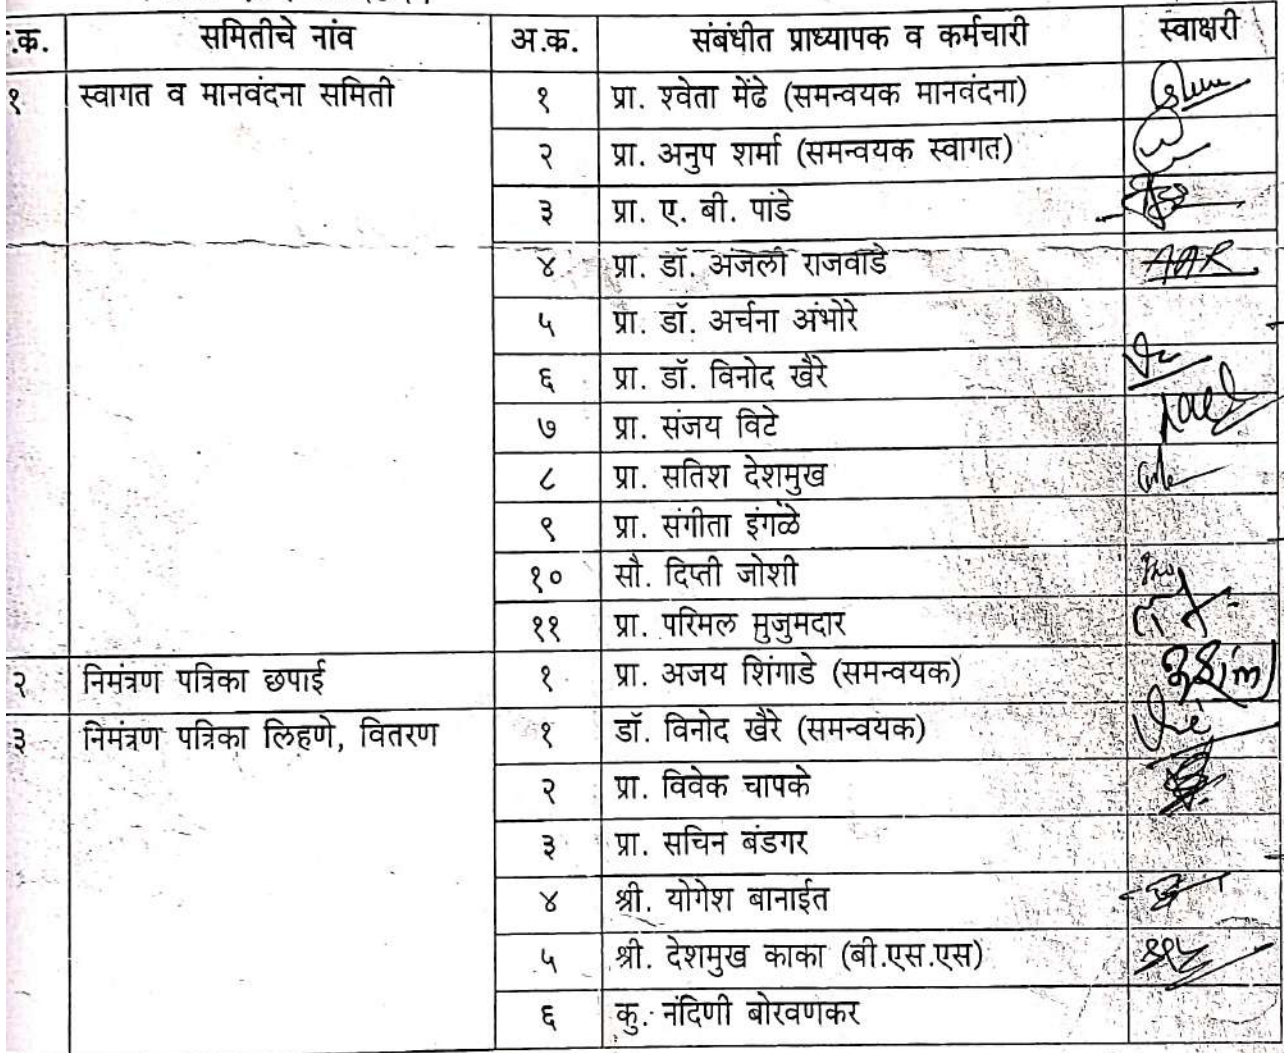 .क. समितीचे नांव अ.क. संबंधीत प्राध्यापक व कर्मचारी स्वाक्षरी
१ स्वागत व मानवंदना समिती १ प्रा. श्वेता मेंढे (समन्वयक मानवंदना)
२ प्रा. अनुप शर्मा (समन्वयक स्वागत)
३ प्रा. ए. बी. पांडे
४ प्रा. डॉ. अंजली राजवाडे AAR
५ प्रा. डॉ. अर्चना अंभोरे
६ प्रा. डॉ. विनोद खैरे
७ प्रा. संजय विटे
८ प्रा. सतिश देशमुख
९ प्रा. संगीता इंगळे
१० सौ. दिप्ती जोशी
११ प्रा. परिमल मुजुमदार
२ निमंत्रण पत्रिका छपाई १ प्रा. अजय शिंगाडे (समन्वयक)
३ निमंत्रण पत्रिका लिहणे, वितरण १ डॉ. विनोद खैरे (समन्वयक)
२ प्रा. विवेक चापके
३ प्रा. सचिन बंडगर
४ श्री. योगेश बानाईत
५ श्री. देशमुख काका (बी.एस.एस)
६ कु. नंदिणी बोरवणकर